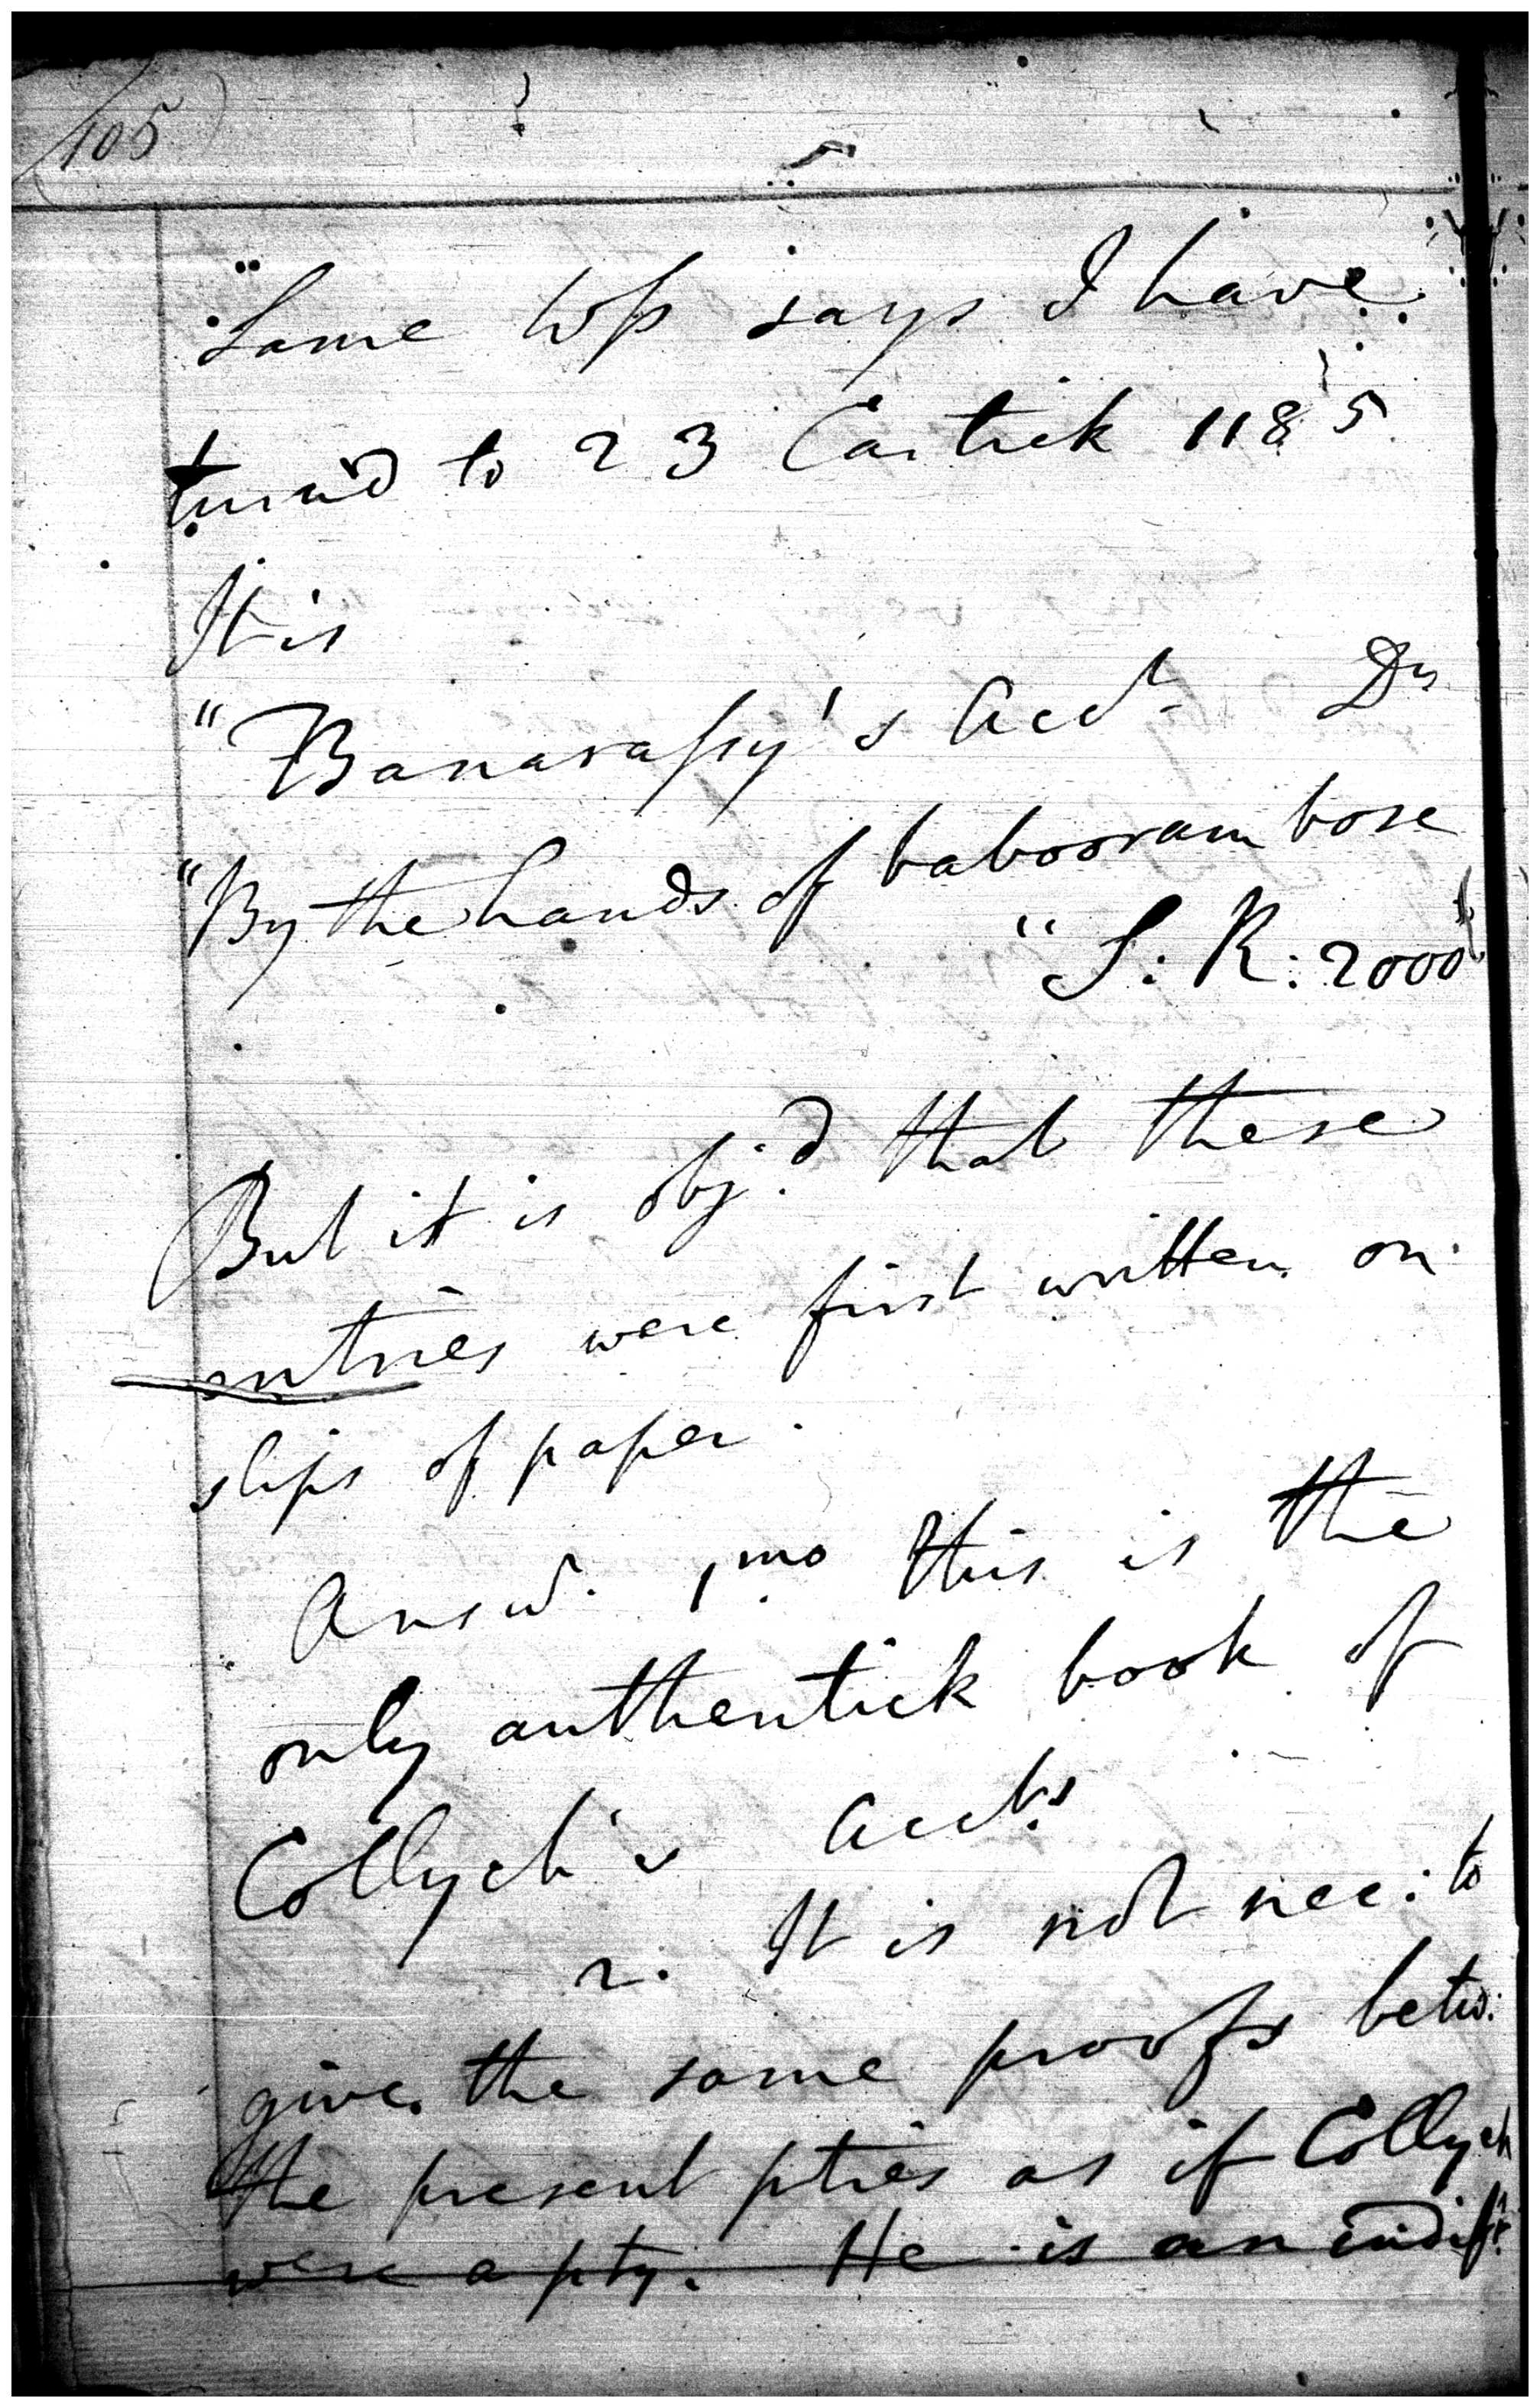 105
Same Wss says I have
turn'd to 23 Cartick 1185
It is
"Banarassy's Acct. Dr
"By the hands of babooram bose
"S: R: 2000"
But it is obj:d that these
entries were first written on
slips of paper.
Answ. 1mo this is the
only authentick book of
Collych's Accts
2. It is not nec: to
give the same proofs betw:
the present pties as if Collych
were a pty. He is an indifft.